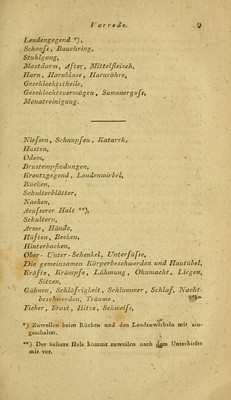 Vorrede. 9
Lendengegend *),
Schooſs, Bauchring,
Stuhlgang,
Mastdarm, After, Mittelfleisch,
Harn, Harnblase, Harnröhre,
Geschlechtstheile,
Geschlechtsvermögen, Samenerguſs,
Monatreinigung.
Nieſsen, Schnupfen, Katarrh,
Husten,
Odem,
Brustempfindungen,
Kreutzgegend, Lendenwirbel,
Rücken,
Schulterblätter,
Nacken,
Aeuſserer Hals **),
Schultern,
Arme, Hände,
Hüften, Becken,
Hinterbacken,
Ober- Unter-Schenkel, Unterfüſse,
Die gemeinsamen Körperbeschwerden und Hautübel,
Kräfte, Krämpfe, Lähmung, Ohnmacht, Liegen,
Sitzen,
Gähnen, Schläfrigkeit, Schlummer, Schlaf, Nacht-
beschwerden, Träume,
Fieber, Frost, Hitze, Schweiſs,
*) Zuweilen beim Rücken und den Lendenwirbeln mit ein-
geschaltet.
**) Der äuſsere Hals kömmt zuweilen nach dem Unterkiefer
mit vor.